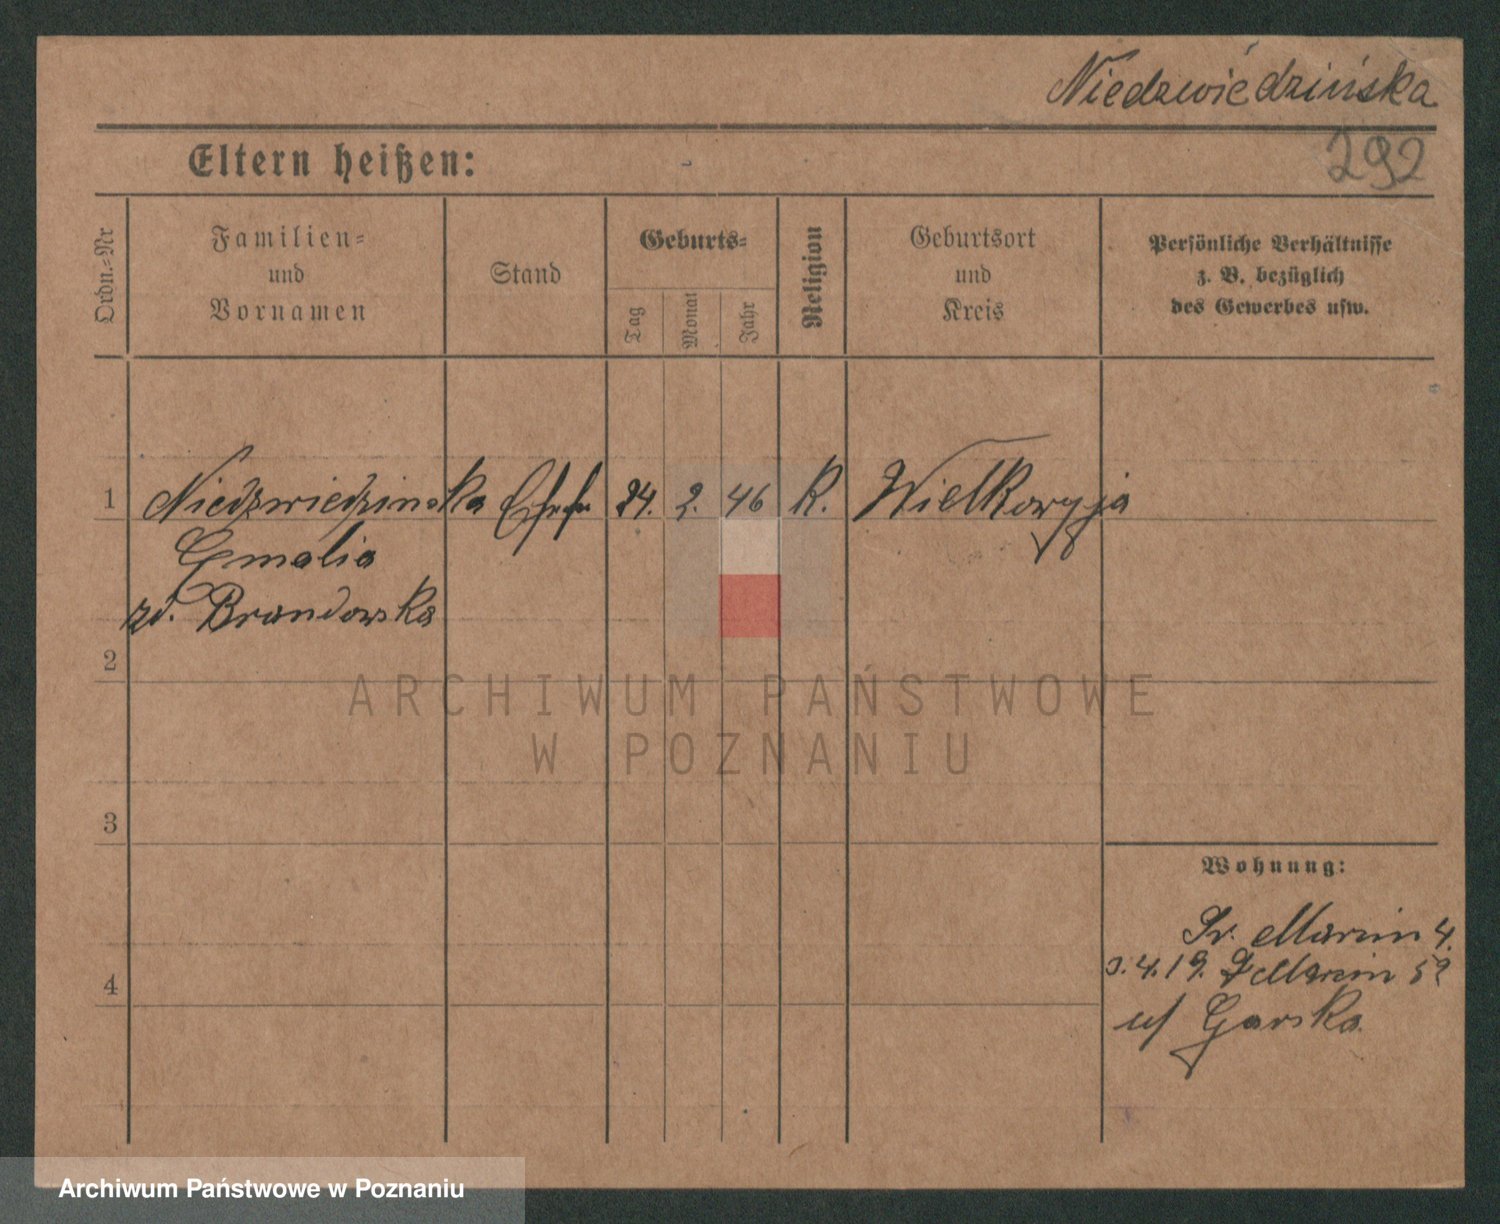 Niedzwiédzińska
292
Eltern heißen:
Ordn.-Nr
Familien-
und
Vornamen
Stand
Geburts-
Tag
Monat
Jahr
Religion
Geburtsort
und
Kreis
Persönliche Verhältnisse
z. B. bezüglich
des Gewerbes usw.
1 Niedzwiedzinska Ehefr 24. 2. 46 K. Wielkowyja
Emalia
zd. Brandowska
2
ARCHIWUM PAŃSTWOWE
W POZNANIU
3
Wohnung:
Sv. Marcin 4.
4.19. Marcin 59
4
u/ Garska
Archiwum Państwowe w Poznaniu